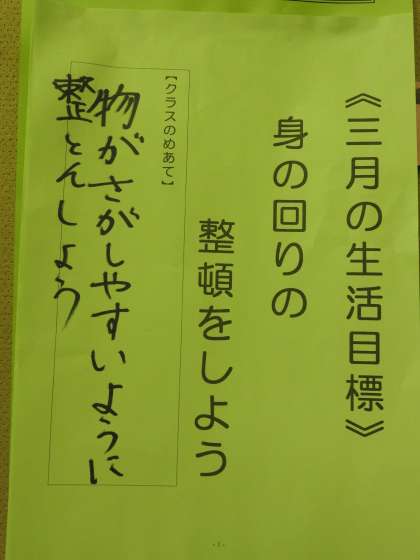 《三月の生活目標》
身の回りの
整頓をしよう
【クラスのめあて】
物がさがしやすいように
整とんしよう